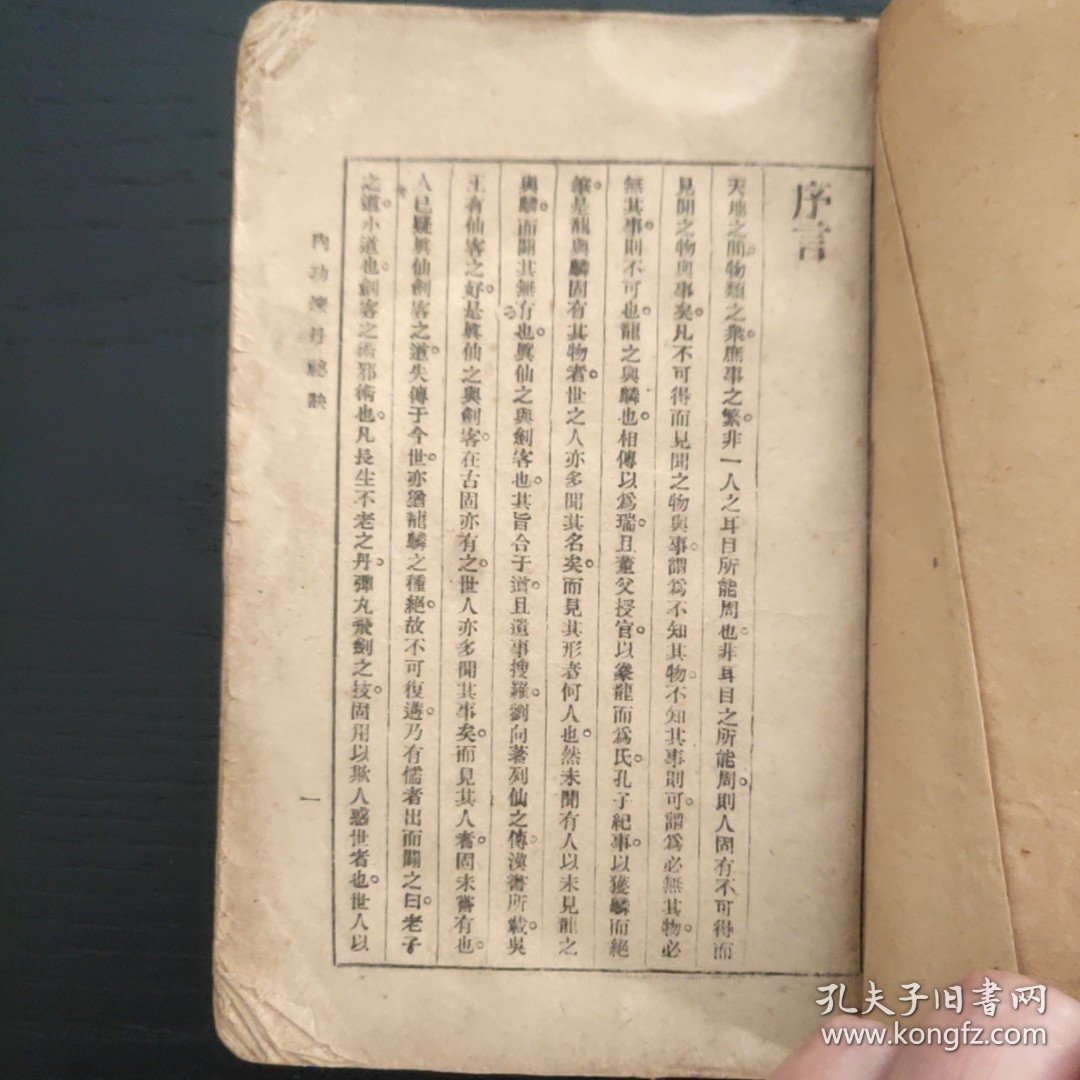 序言
天地之間物類之衆庶事之繁。非一人之耳目所能周也。非耳目之所能周則人固有不可得而
見聞之物與事矣。凡不可得而見聞之物與事。謂爲不知其物。不知其事則可。謂爲必無其物。必
無其事。則不可也。龍之與麟也。相傳以爲瑞。且董父授官。以豢龍而爲氏。孔子紀事。以獲麟而絕
筆。是龍與麟固有其物者。世之人亦多聞其名矣。而見其形者何人也。然未聞有人以未見龍之
與麟。而闢其無有也。眞仙之與劍客也。其旨合于道。且遺事搜羅。劉向著列仙之傳。漢書所載。吳
王有仙客之好。是眞仙之與劍客。在古固亦有之。世人亦多聞其事矣。而見其人者。固未嘗有也。
人已疑眞仙劍客之道。失傳于今世。亦猶龍麟之種絕。故不可復遘。乃有儒者出而闢之曰。老子
之道。小道也。劍客之術。邪術也。凡長生不老之丹。彈丸飛劍之技。固用以欺人惑世者也。世人以
內功煉丹秘訣
一
孔夫子旧书网
www.kongfz.com